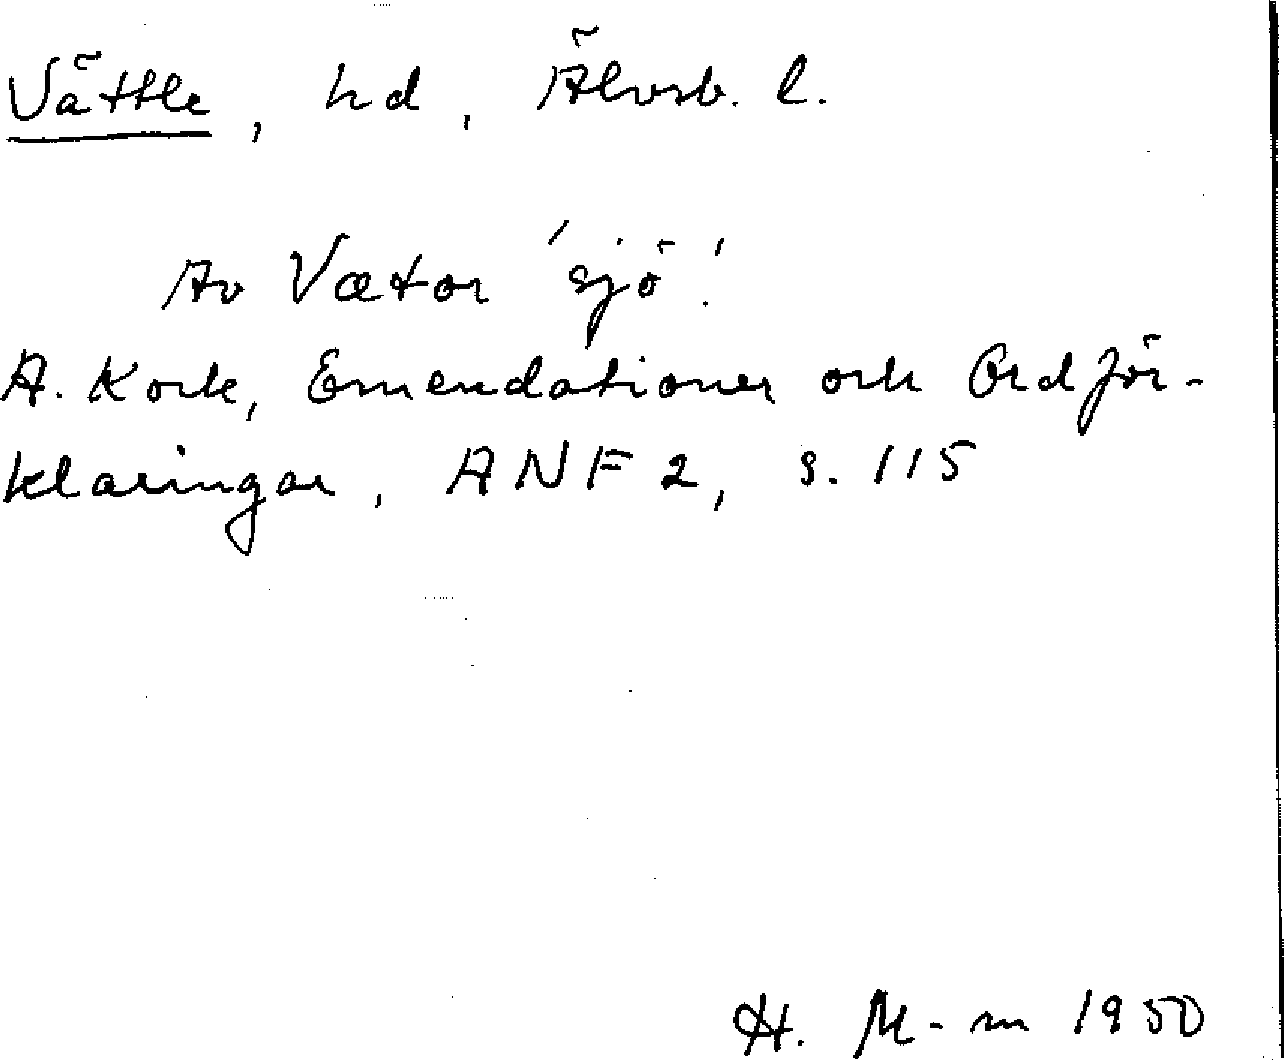 Vättle, hd, Älvsb. l.
Av Vætor 'sjö'.
A. Kock, Emendationer och Ordför-
klaringar, ANF 2, s. 115
H. M-m 1950